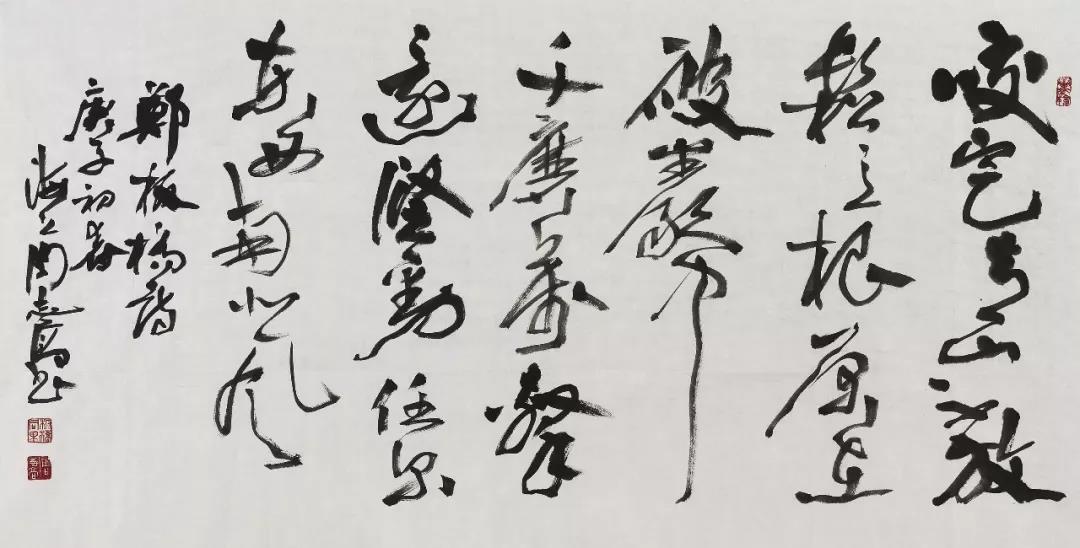 咬定青山不放
鬆立根原在
破巖中
千磨萬擊
還堅勁任尔
東西南北風
鄭板橋詩
庚子初春
海上周志高書